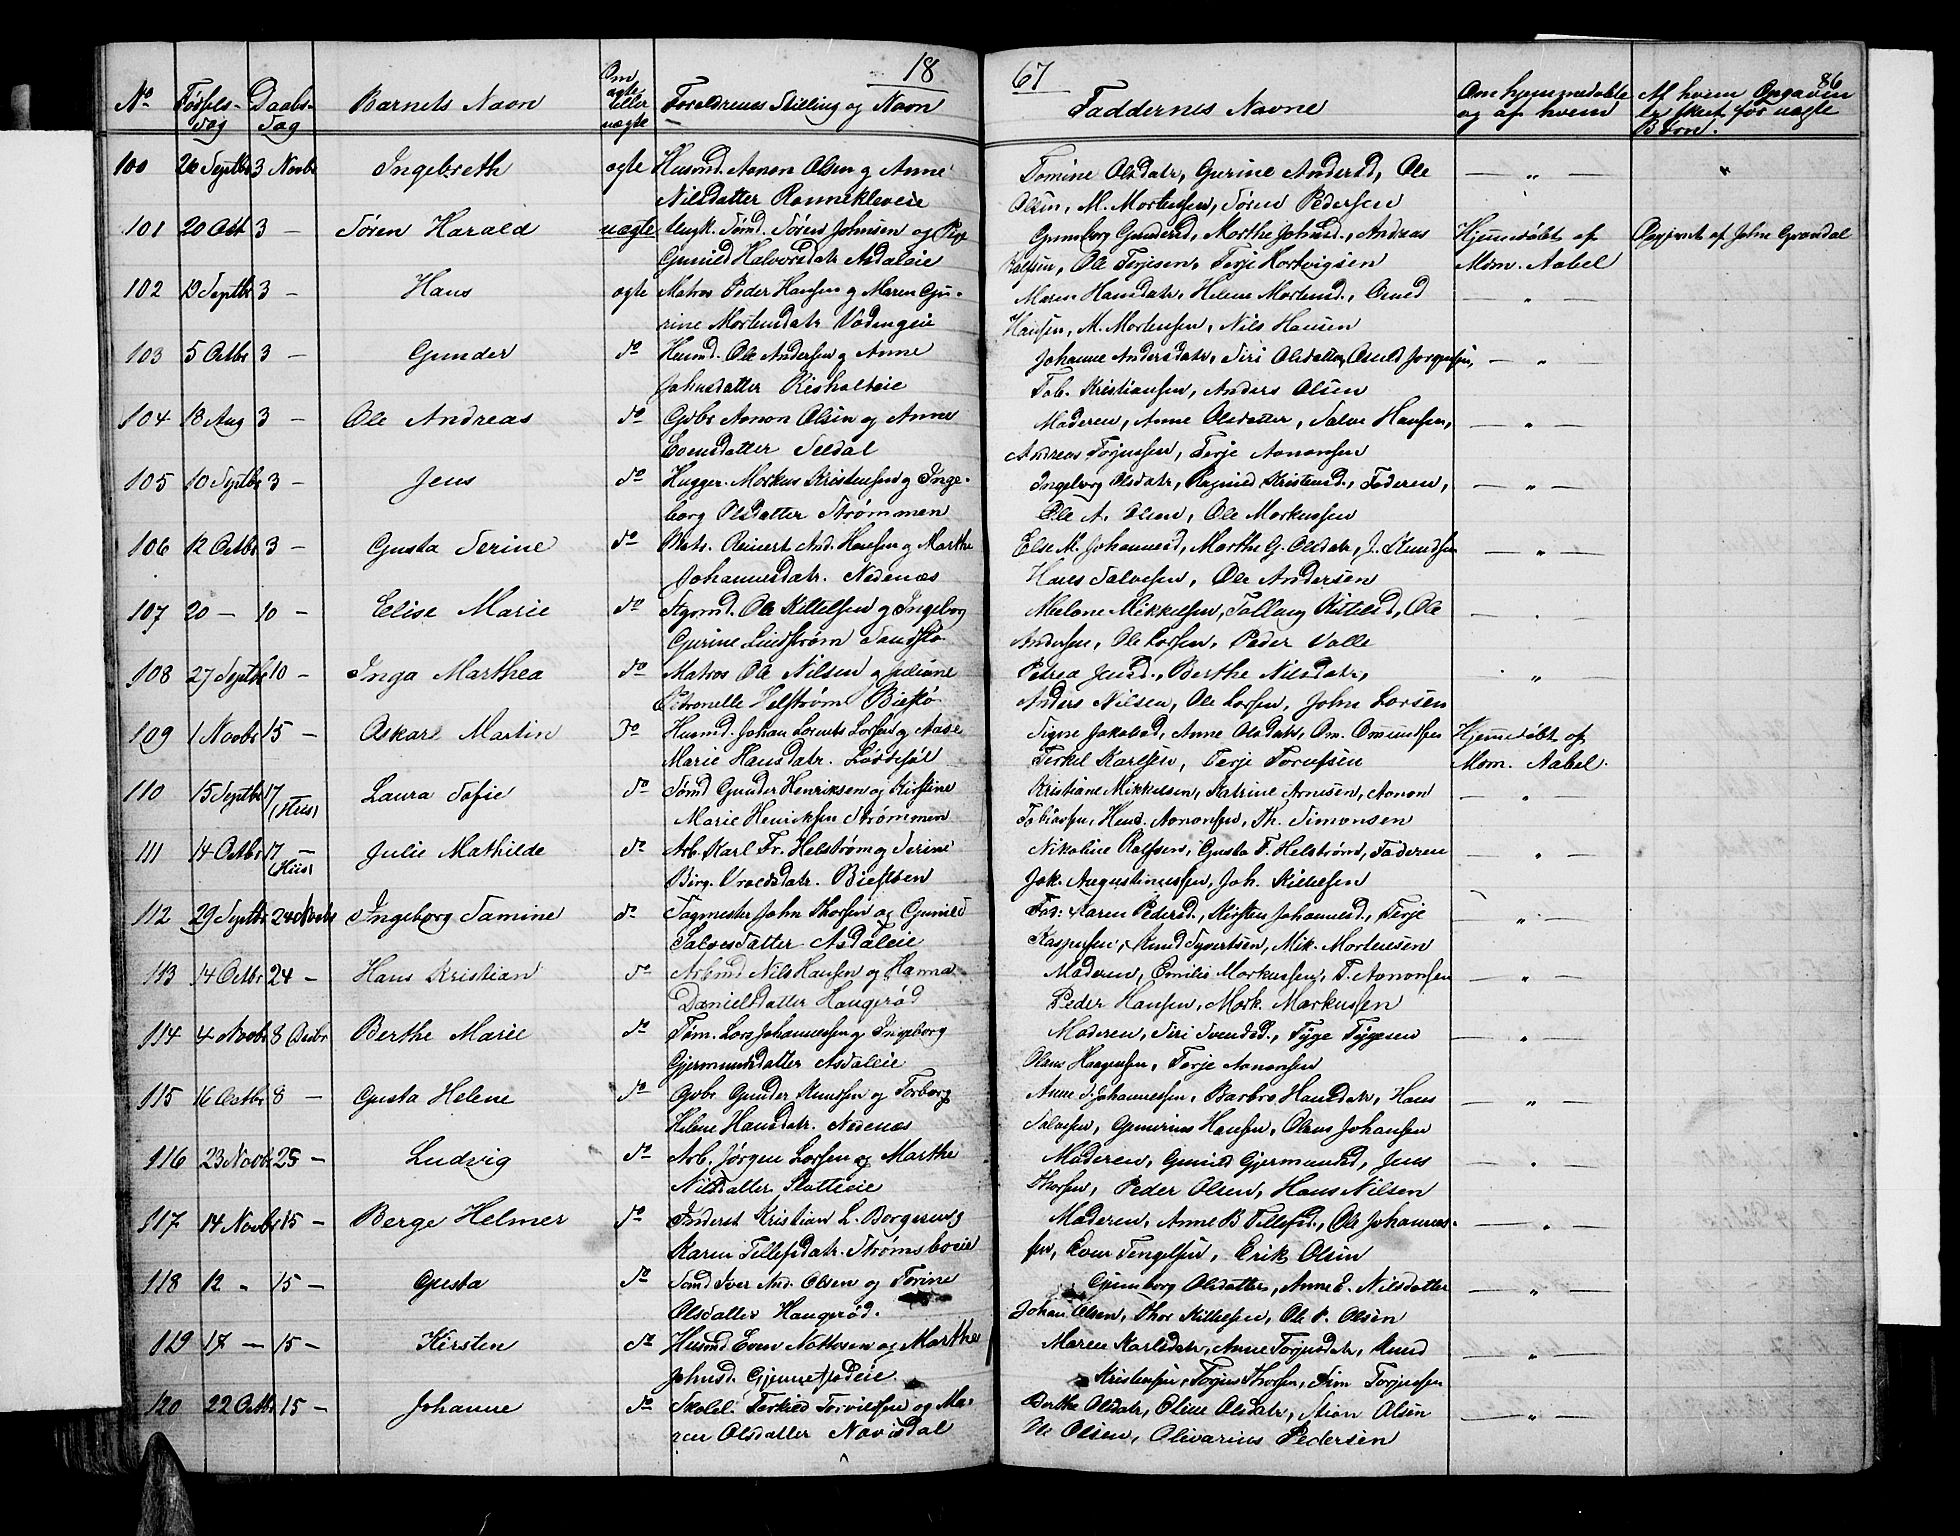 18
67
86
No Fødsels- Daabs- Barnets Navn Om ægte eller uægte Forældrenes Stilling og Navn Faddernes Navne Om hjemmedøbte Af hvem Opgaven
dag dag og af hvem er skeet for uægte
Børn.
100 20 Septbr 3 Novbr Ingebreth ægte Husmd. Aanon Olsen og Anne Tomine Olsdatr, Gurine Andersd, Ole — " — "
Nilsdatter Rønnekleveie Olsen, M. Mortensen, Søren Pedersen
101 20 Oct 3 — Søren Harald uægte Ungk. Sømd. Søren Johnsen og Pige Gunnborg Gundersd, Marthe Johnsd., Andreas Hjemmedøbt af Opgivet af John Grændal
Gunild Halvorsdatr Asdaleie Kalfsen, Ole Terjesen, Terje Hartvigsen Mom. Aabel
102 19 Septbr 3 — Hans ægte Matros Peder Hansen og Maren Gu- Maren Hansdatr, Helene Mortensd., Omed — " —
rine Mortensdatr Vødingeie Hansen, M. Mortensen, Nils Hansen
103 5 Octbr 3 — Gunder do Husmd. Ole Andersen og Anne Johanne Andersdatr, Siri Olsdatter, Osuld Jørgensen, — " —
Johnsdatter Risholteie Tob. Kristiansen, Anders Olsen
104 18 Aug 3 — Ole Andreas do Gdbr Aanon Olsen og Anne Moderen, Anne Olsdatter, Salve Hansen, — " —
Evensdatter Seldal Andreas Torjussen, Terje Aanonsen
105 10 Septbr 3 — Jens do Hugger. Markus Kristensen og Inge- Ingeborg Olsdatr, Ragnild Kristensd., Faderen, — " —
borg Olsdatter Strømmen Ole A. Olsen, Ole Markussen
106 12 Octbr 3 — Gusta Serine do Matr. Reinert And. Hansen og Marthe Else M. Johannesd, Marthe G. Olsdatr, J. Knudsen — " —
Johannesdatr. Nedenæs Hans Salvesen, Ole Andersen
107 20 — 10 — Elise Marie do Styrmd. Ole Kittelsen og Ingeborg Malene Mikkelsen, Tallaug Kittelsd, Ole — . —
Gurine Lindstrøm Sandstø Andersen, Ole Larsen, Peder Valle
108 27 Septbr 10 — Inga Marthea do Matros Ole Nilsen og Juliane Petrea Jensd., Berthe Nilsdatr, . " —
Petronelle Helstrøm Biestø Anders Nilsen, Ole Larsen, John Larsen
109 1 Novbr 15 — Oskar Martin do Husmd. Johan Lorents Larsen og Aase Signe Jakobsd, Anne Olsdatr, Om. Omundsen Hjemmedøbt af
Marie Hansdatr. Løddesøl Terkel Karlsen, Terje Torufsen Mom. Aabel.
110 15 Septbr 17 — Laura Sofie do Sømd Gunder Henriksen og Kirstine Kristiane Mikkelsen, Katrine Arnesen, Aanon — " —
(Hiis) Marie Henriksen Strømmen Tobiassen, Hend. Aanonsen, Th. Simonsen
111 14 Octbr 17 — Julie Mathilde do Arb. Karl Fr. Helstrøm og Serine Nikoline Kalfsen, Gusta F. Helstrøm, Faderen — " —
(Hiis) Birg. Vraalsdatr. Bieståen Jak. Augustinussen, Joh. Kittelsen
112 29 Septbr 24 Novbr Ingeborg Samine do Sagmester John Thorsen og Gunild Fad: Karen Pedersd., Kirsten Johannesd., Terje — " —
Salvesdatter Asdaleie Kaspersen, Knud Syvertsen, Mik. Mortensen
113 14 Octbr 24 — Hans Kristian do Arbmd Nils Hansen og Hanna Moderen, Emilie Markussen, T. Aanonsen — " —
Danielsdatter Haugerød Peder Hansen, Mark. Markussen
114 4 Novbr 8 Decbr Berthe Marie do Tøm. Lars Johannessen og Ingeborg Moderen, Siri Svendsd., Tyge Tygesen — " —
Gjermundsdatter Asdaleie Olaus Haagensen, Terje Aanonsen
115 16 Octbr 8 — Gusta Helene do Gdbr Gunder Knutsen og Torborg Anne J. Johannessen, Barbro Hansdatr, Hans — " —
Helene Hansdatr. Nedenæs Salvesen, Gunerius Hansen, Olaus Johansen
116 23 Novbr 25 — Ludvig do Arb. Jørgen Larsen og Marthe Moderen, Gunild Gjermundsd, Jens — . —
Nilsdatter Slatteeie Thorsen, Peder Olsen, Hans Nilsen
117 14 Novbr 15 — Berge Helmer do Inderst Kristian L. Borgersen og Moderen, Anne B Tellefsd., Ole Johannes- — . —
Karen Tellefsdatr. Strømsboeie sen, Even Tengelsen, Erik Olsen
118 12 " 15 — Gusta do Sømd Iver And. Olsen og Torine Gunnborg Olsdatter, Anne E. Nilsdatter — " —
Olsdatter Haugerød. Johan Olsen, Thor Kittelsen, Ole P. Olsen
119 17 — 15 — Kirsten do Husmd Even Nottosen og Marthe Maren Karlsdatr, Anne Torjusdatr, Knud — " —
Johnsd. Gjennestadeie Kristensen, Torjus Thorsen, Sim Torjussen
120 22 Octbr 15 — Johanne do Skolel. Torkild Torvilsen og Ma- Berthe Olsdatr, Oline Olsdatr, Aion Olsen — " —
ren Olsdatter Navisdal N. Olsen, Olivarius Pedersen